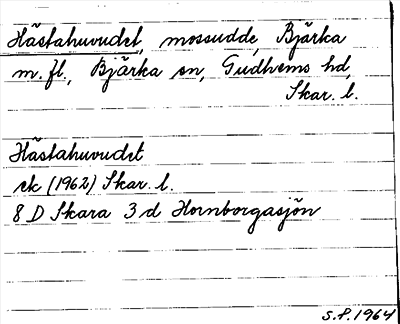 Hästahuvudet, mossudde, Bjärka
m. fl., Bjärka sn, Gudhems hd,
Skar. l.
Hästahuvudet
ek (1962) Skar. l.
8 D Skara 3 d Hornborgasjön
S.P. 1964